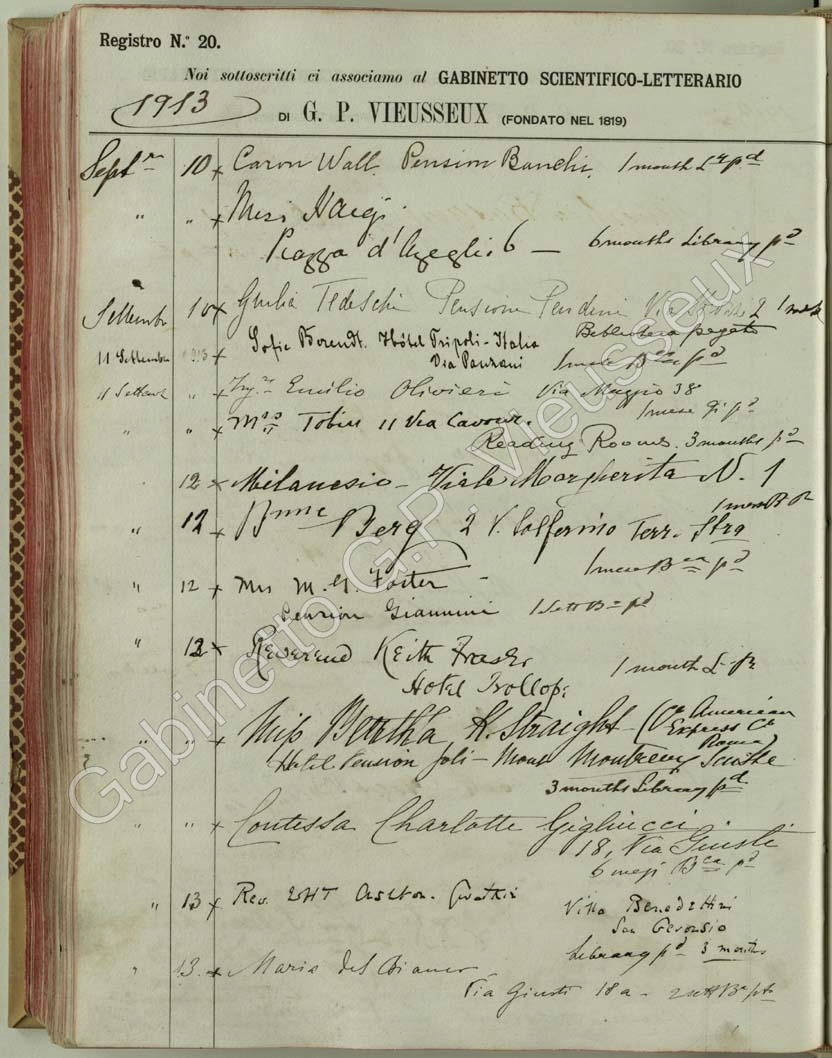 Registro N.º 20.
Noi sottoscritti ci associamo al GABINETTO SCIENTIFICO-LETTERARIO
1913
DI G. P. VIEUSSEUX (FONDATO NEL 1819)
Sept.re 10 x Caron Wall. Pension Banchi. 1 month L.ry pd
" " x Miss
Piazza d'Azeglio 6 — 6 months Library pd
Settembre 10 x Giulia Tedeschi Pensione Pendini Via Strozzi 2 1 mese
Biblioteca pagato
11 Settembre 1913 x Sofie Berendt. Hôtel Tripoli - Italia
Via Panzani 1 mese Bca pd
11 Settemb " x Ing.re Emilio Olivieri Via Maggio 38
1 mese pd
" " x Mrs Tobin 11 Via Cavour.
Reading Rooms. 3 months pd
12 x Milanesio - Viale Margherita N. 1
1 mese B pd
" 12 x Bnne Berg 2 V. Solferino Terr. Stra
1 mese Bca pd
" 12 x Mrs M. G. Foster -
Pension Giannini 1 Sett Ba pd
" 12 x Reverend Keith Fraser
Hotel Trollope 1 month L. pd
" " x Miss Bertha K. Straight - (Co American
Express Co
Roma)
Hotel Pension Joli - Mont Montreux Suisse
3 months Library pd.
" " x Contessa Charlotte Gigliucci.
18, Via Giusti
6 mesi Bca pd
" 13 x Rev. Ashton-
Villa Benedettini
San Gervasio
Library pd 3 months
" 13. x Maria del Bianco
Via Giusti 18a - 2 sett Ba pto
Gabinetto G.P. Vieusseux